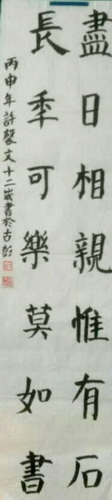 盡日相親惟有石
長年可樂莫如書
丙申年許馨文十二歲書於古彭